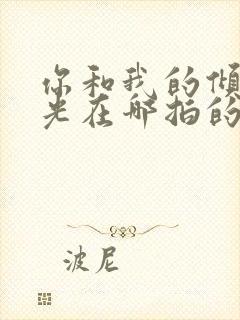 你和我的倾
光在哪拍的
波尼